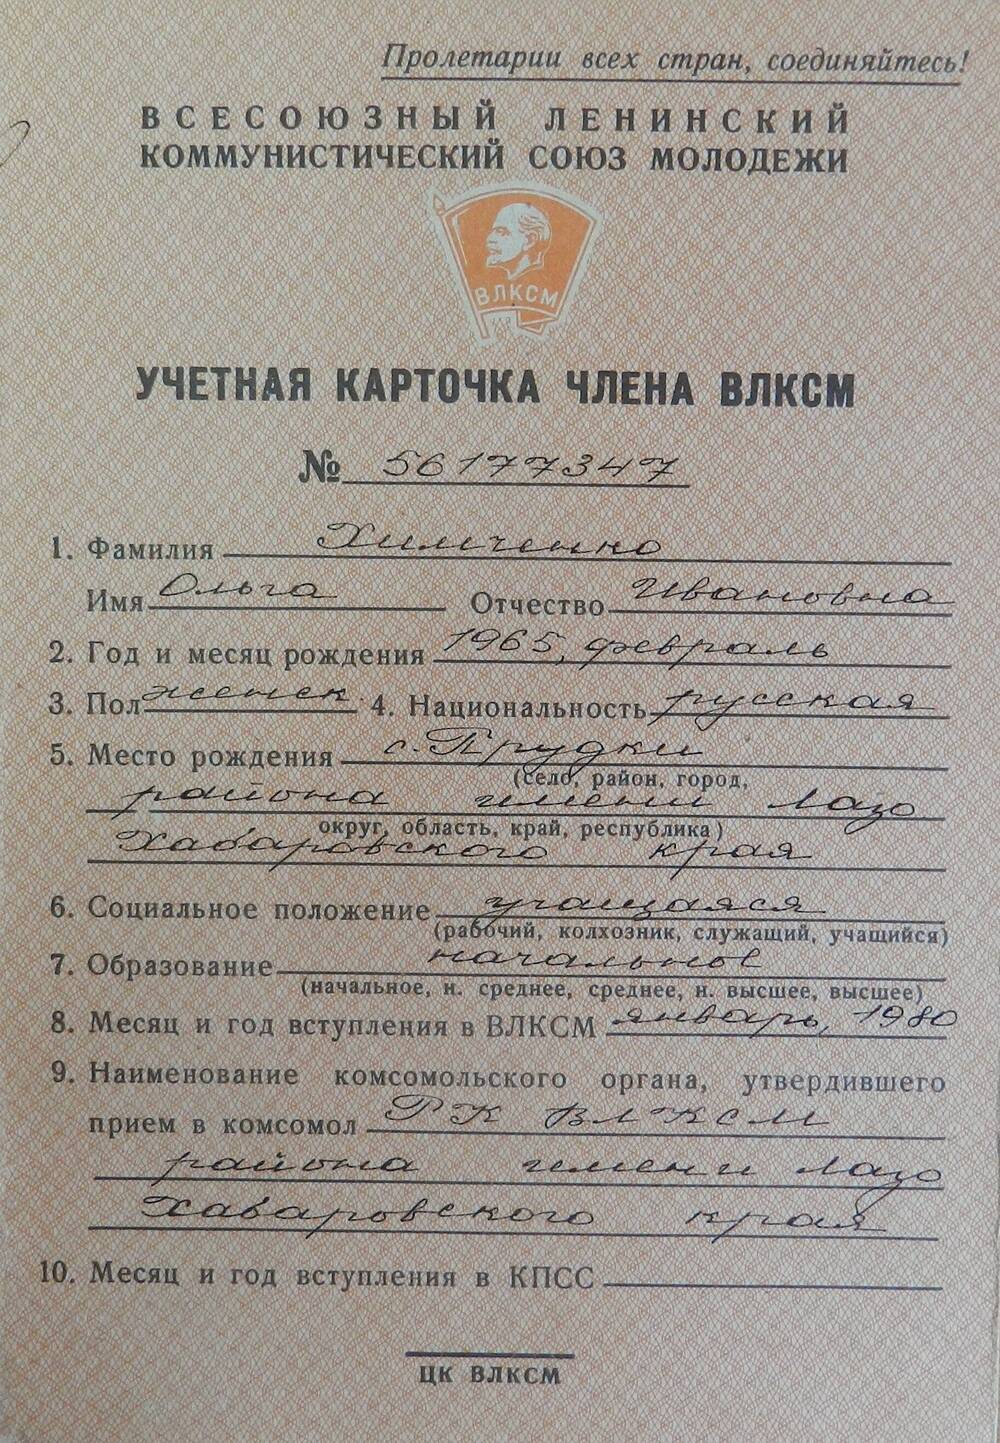 Пролетарии всех стран, соединяйтесь!
ВСЕСОЮЗНЫЙ ЛЕНИНСКИЙ
КОММУНИСТИЧЕСКИЙ СОЮЗ МОЛОДЕЖИ
ВЛКСМ
УЧЕТНАЯ КАРТОЧКА ЧЛЕНА ВЛКСМ
№ 56177347
1. Фамилия Химченко
Имя Ольга Отчество Ивановна
2. Год и месяц рождения 1965, февраль
3. Пол женск. 4. Национальность русская
5. Место рождения с. Прудки
(село, район, город,
района имени Лазо
округ, область, край, республика)
Хабаровского края
6. Социальное положение учащаяся
(рабочий, колхозник, служащий, учащийся)
7. Образование начальное
(начальное, н. среднее, среднее, н. высшее, высшее)
8. Месяц и год вступления в ВЛКСМ январь, 1980
9. Наименование комсомольского органа, утвердившего
прием в комсомол РК ВЛКСМ
района имени Лазо
Хабаровского края
10. Месяц и год вступления в КПСС
ЦК ВЛКСМ